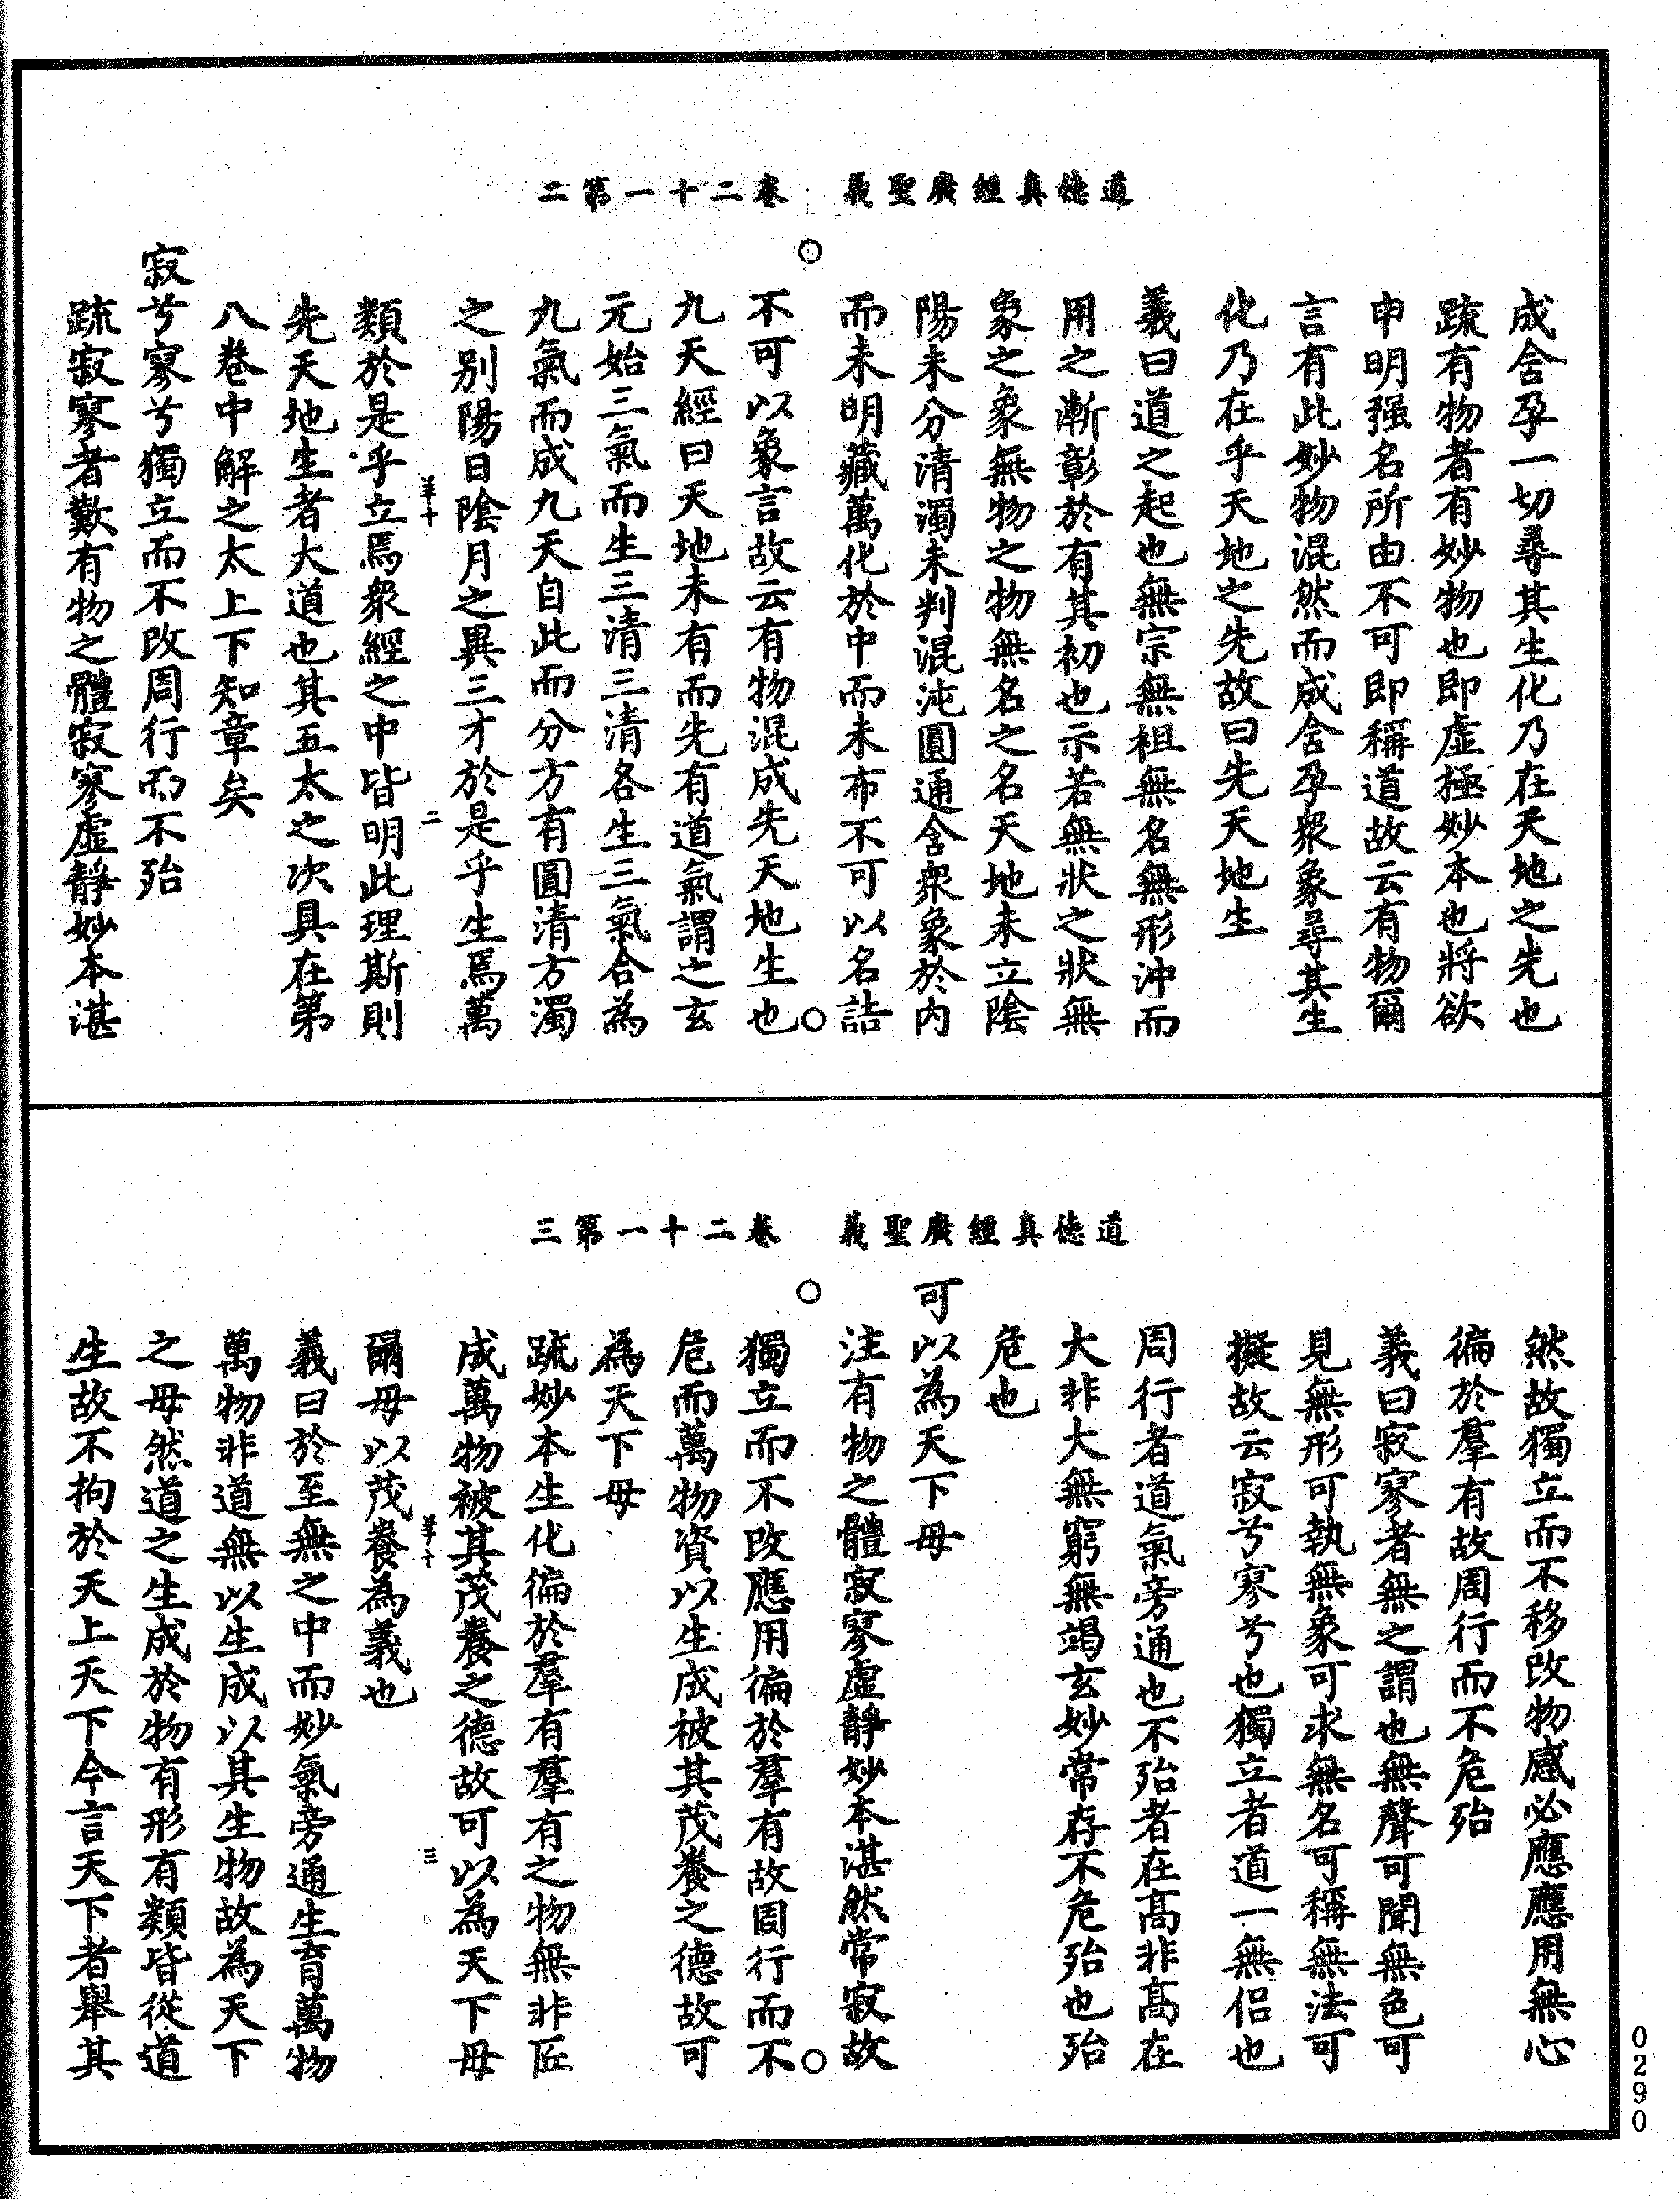 道德真經廣聖義　卷二十一第二
成含孕一切尋其生化乃在天地之先也
疏有物者有妙物也即虛極妙本也將欲
申明强名所由不可即稱道故云有物爾
言有此妙物混然而成含孕衆象尋其生
化乃在乎天地之先故曰先天地生
義曰道之起也無宗無祖無名無形沖而
用之漸彰於有其初也示若無狀之狀無
象之象無物之物無名之名天地未立陰
陽未分清濁未判混沌圓通含衆象於内
而未明藏萬化於中而未布不可以名詰
不可以象言故云有物混成先天地生也
九天經曰天地未有而先有道氣謂之玄
元始三氣而生三清三清各生三氣合為
九氣而成九天自此而分方有圓清方濁
之别陽日陰月之異三才於是乎生焉萬
羊十　二
類於是乎立焉衆經之中皆明此理斯則
先天地生者大道也其五太之次具在第
八卷中解之太上下知章矣
寂兮寥兮獨立而不改周行而不殆
疏寂寥者歎有物之體寂寥虛靜妙本湛
道德真經廣聖義　卷二十一第三
然故獨立而不移改物感必應應用無心
徧於羣有故周行而不危殆
義曰寂寥者無之謂也無聲可聞無色可
見無形可執無象可求無名可稱無法可
擬故云寂兮寥兮也獨立者道一無侶也
周行者道氣旁通也不殆者在高非高在
大非大無窮無竭玄妙常存不危殆也殆
危也
可以為天下母
注有物之體寂寥虛靜妙本湛然常寂故
獨立而不改應用徧於羣有故周行而不
危而萬物資以生成被其茂養之德故可
為天下母
疏妙本生化徧於羣有羣有之物無非匠
成萬物被其茂養之德故可以為天下母
羊十　三
爾母以茂養為義也
義曰於至無之中而妙氣旁通生育萬物
萬物非道無以生成以其生物故為天下
之母然道之生成於物有形有類皆從道
生故不拘於天上天下今言天下者舉其
0290